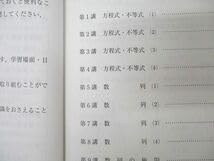 ておくと便利なこ
進してください。
す。学習場面・目
取り組むことがで
識をおさえること
第1講 方程式・不等式 (1)
第2講 方程式・不等式 (2)
第3講 方程式・不等式 (3)
第4講 方程式・不等式 (4)
第5講 数 列 (1)
第6講 数 列 (2)
第7講 数 列 (3)
第8講 数 列 (4)